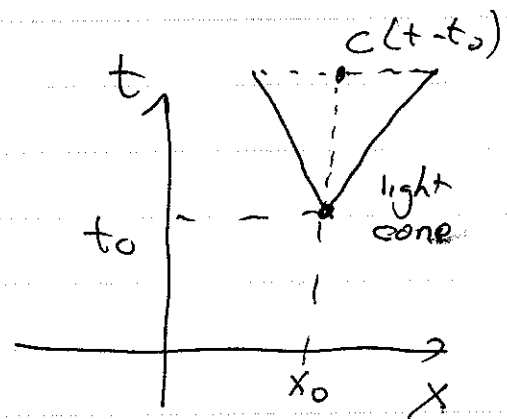 c(t-t₀)
t
light
cone
t₀
x₀
x